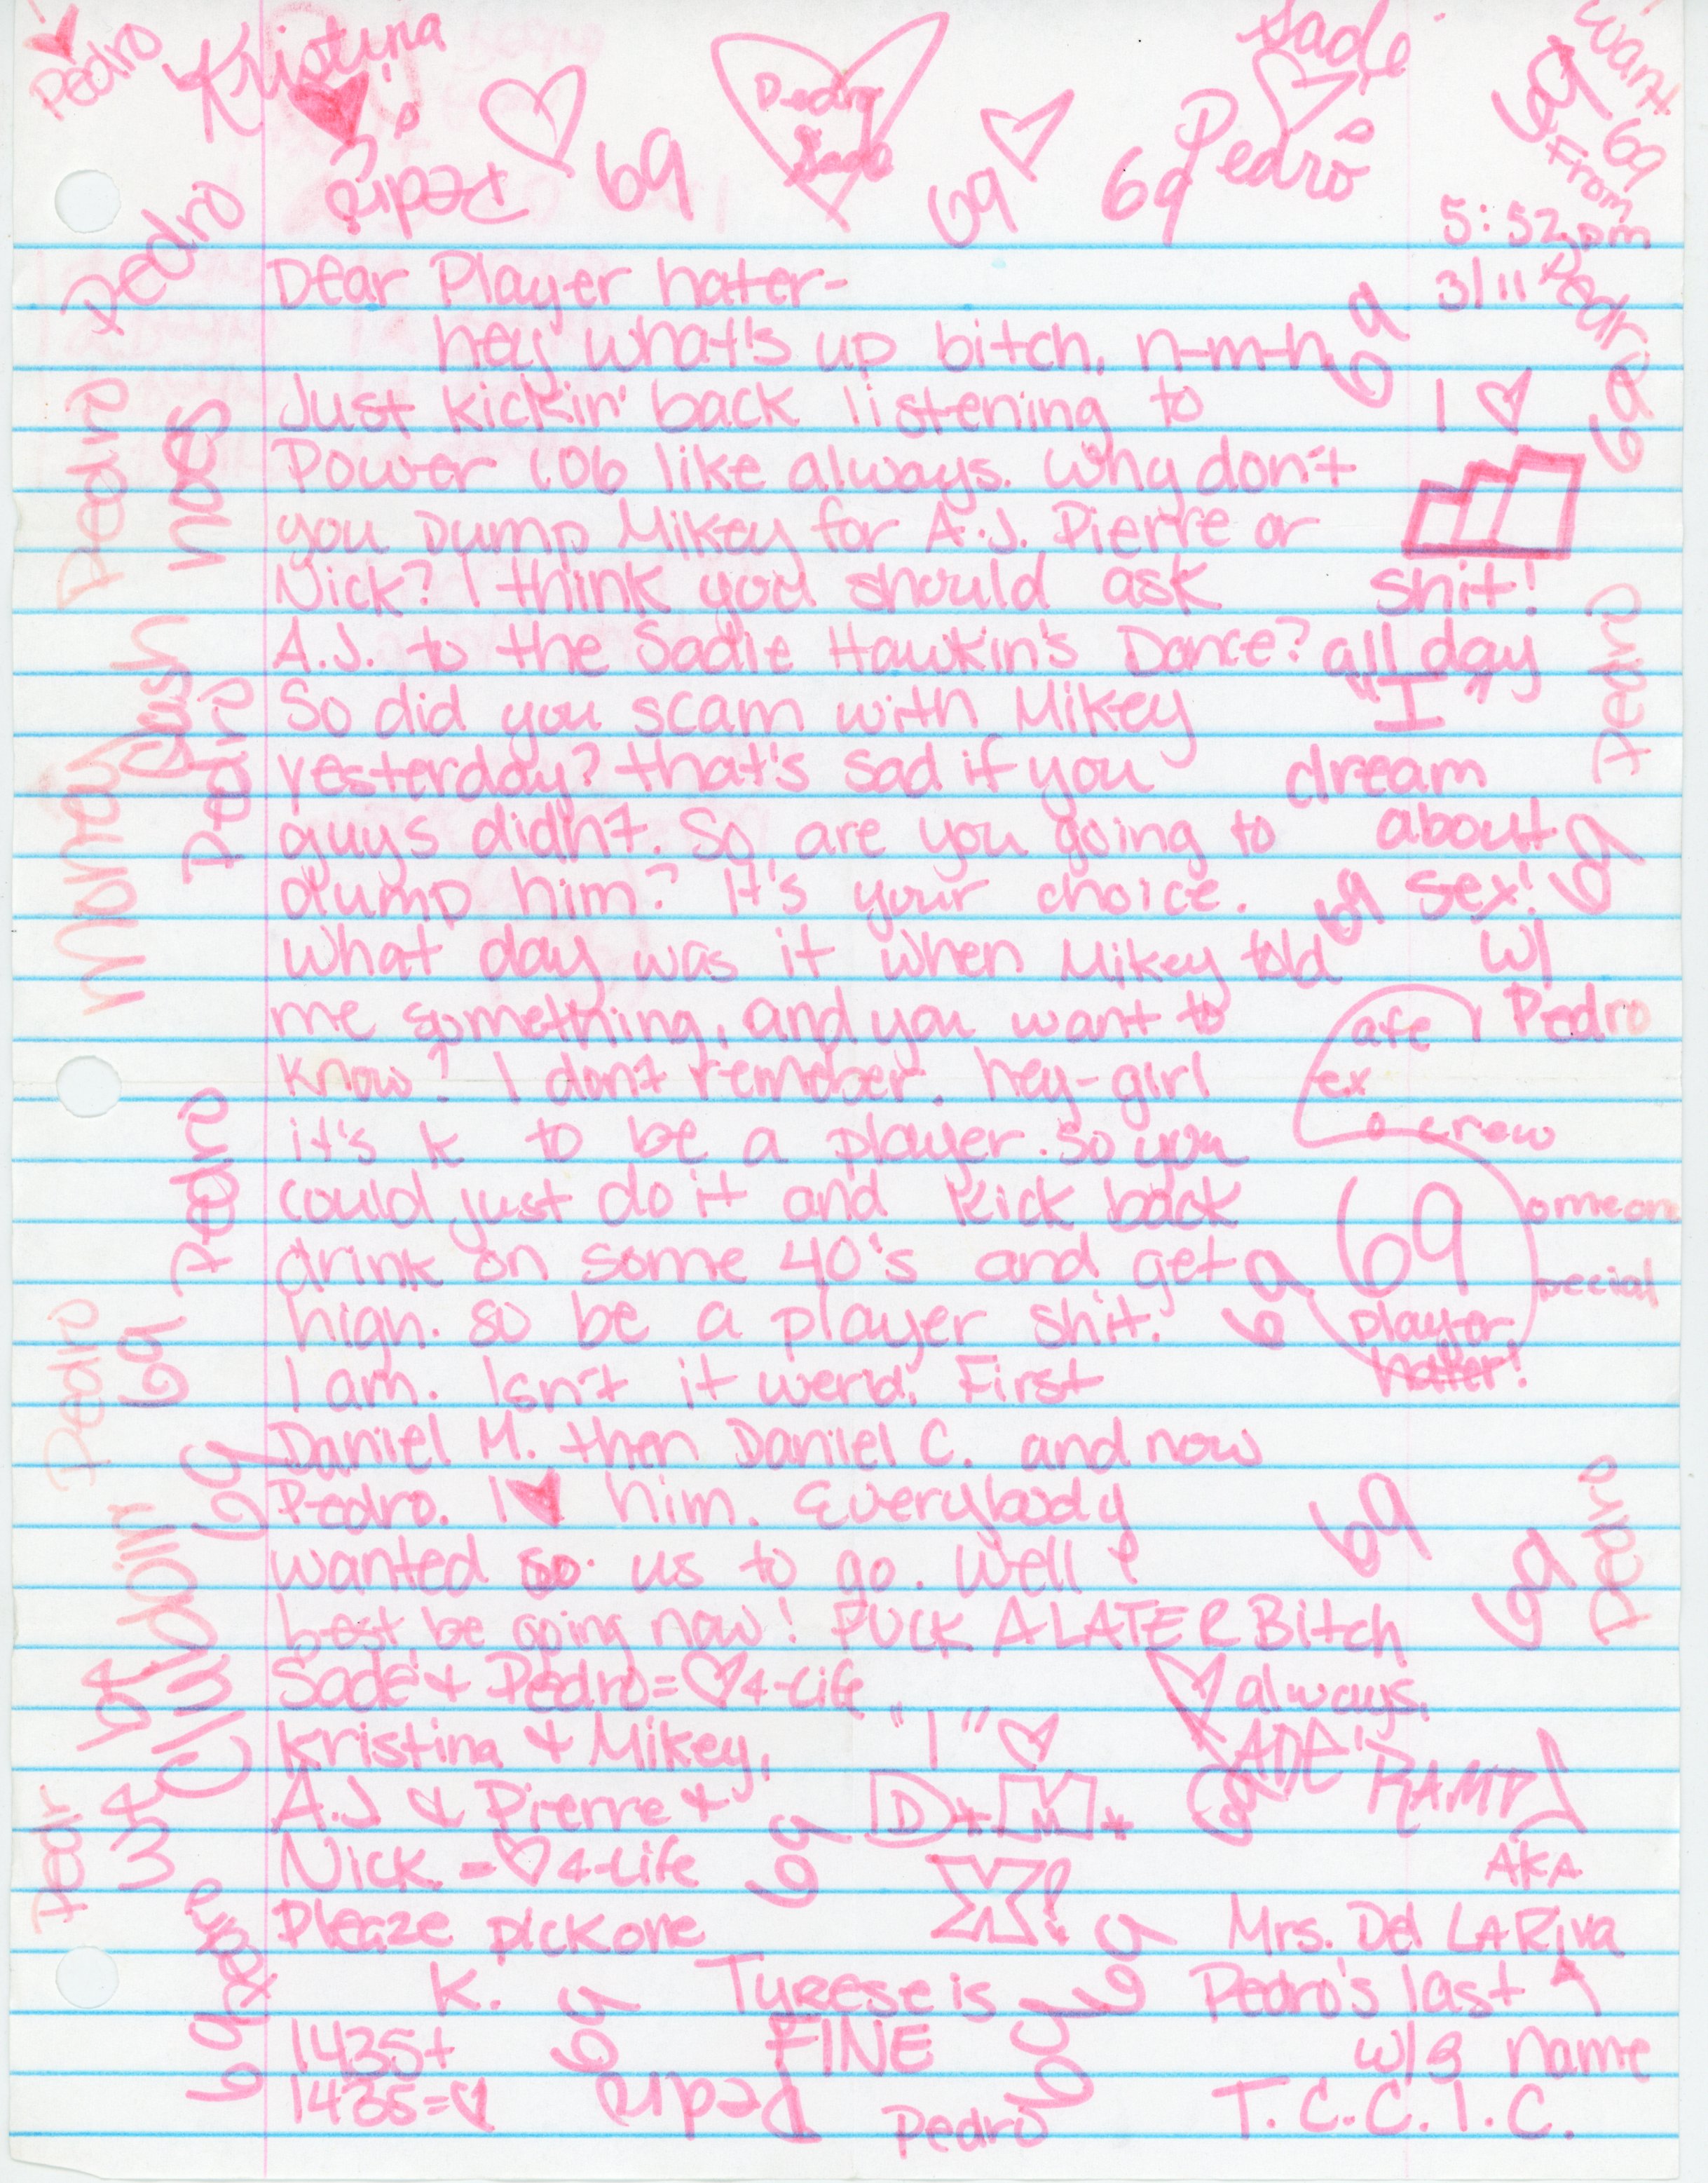 Pedro
Kristina
Sadé
want
Pedro
69
Pedro
Sade
69
69
Pedro
69
69
From
Pedro
5:52 pm
3/11
Pedro
69
Dear Player hater-
hey what's up bitch, n-m-h
69
Just kickin' back listening to
I ♡
Power 106 like always. Why don't
you Dump Mikey for A.J. Pierre or
Nick? I think you should ask
shit!
A.J. to the Sadie Hawkin's Dance?
all day
So did you scam with Mikey
"I"
yesterday? that's sad if you
dream
guys didn't. So are you going to
about
dump him? It's your choice.
69
sex!
69
What day was it when Mikey told
w/
me something, and you want to
Pedro
know? I don't remeber. hey-girl
it's k to be a player. so you
could just do it and kick back
drink on some 40's and get
high. so be a player shit.
I am. Isn't it werid. First
Daniel M. then Daniel C. and now
Pedro. I ♥ him. Everybody
wanted so us to go. Well I
best be going now! FUCK A LATER Bitch
afe
ex
crew
69
omeone
pecial
player
hater!
69
69
69
Pedro
Pedro
Sadé & Pedro = ♡ 4-Life
♡ always,
Kristina & Mikey,
"I" ♡
SADE' RAMD
A.J & Pierre &
D * M *
69
Nick. = ♡ 4-Life
69
X!
AKA
Pleaze pick one
69
Mrs. Del LA Riva
K.
69
Tyrese is
FINE
69
Pedro's last
1435+
w/3 name
1435=♡
Pedro
Pedro
T.C.C.I.C.
Pedro
hoes
Pedro
money
Cash
Pedro
Pedro
Pedro
69
69
Clubbin
Pedr
69
Pedro